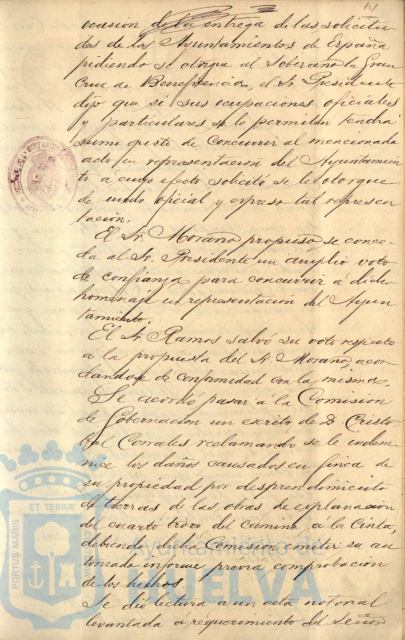 14
ocasion de la entrega de las solicitu-
des de los Ayuntamientos de España
pidiendo se otorgue al Soberano la Gran
Cruz de Beneficencia, el Sr. Presidente
dijo que si sus ocupaciones oficiales
y particulares se lo permiten tendrá
sumo gusto de concurrir al mencionado
acto en representación del Ayuntamien-
to á cuyo efecto solicitó se le otorgue
de modo oficial y expreso tal represen-
tación.
El Sr. Morano propuso se conce-
da al Sr. Presidente un amplio voto
de confianza para concurrir á dicho
homenaje en representación del Ayun-
tamiento.
El Sr. Ramos salvó su voto respecto
á la propuesta del Sr. Morano, acor-
dandose de conformidad con la misma.
Se acordó pasar á la Comision
de Gobernacion un escrito de D. Cristo-
bal Corrales reclamando se le indem-
nice los daños causados en finca de
su propiedad por desprendimiento
de tierras de las obras de explanacion
del cuarto trozo del camino á la Cinta,
debiendo dicha Comision emitir su au-
torizado informe previa comprobacion
de los hechos.
Se dió lectura a un acta notarial
levantada a requerimiento del Señor
PORTUS MARIS ET TERRAE
Ayuntamiento de
HUELVA